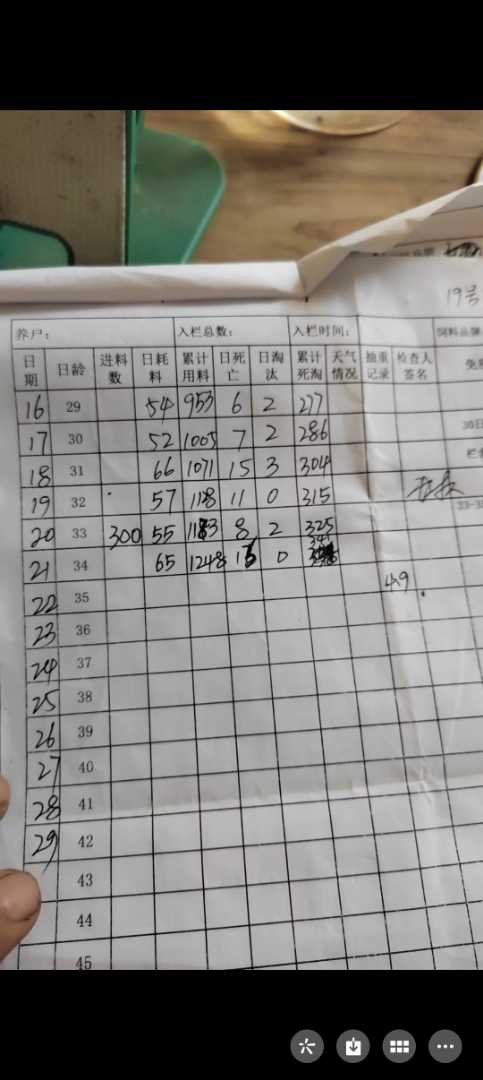 19号
养户： 入栏总数： 入栏时间： 饲料品牌
日期 日龄 进料数 日耗料 累计用料 日死亡 日淘汰 累计死淘 天气情况 抽重记录 检查人签名 免
16 29 54 953 6 2 277
17 30 52 1005 7 2 286 30日
18 31 66 1071 15 3 304
19 32 57 1128 11 0 315
20 33 300 55 1183 8 2 325
21 34 65 1248 0 4.9
22 35
23 36
24 37
25 38
26 39
27 40
28 41
29 42
43
44
45